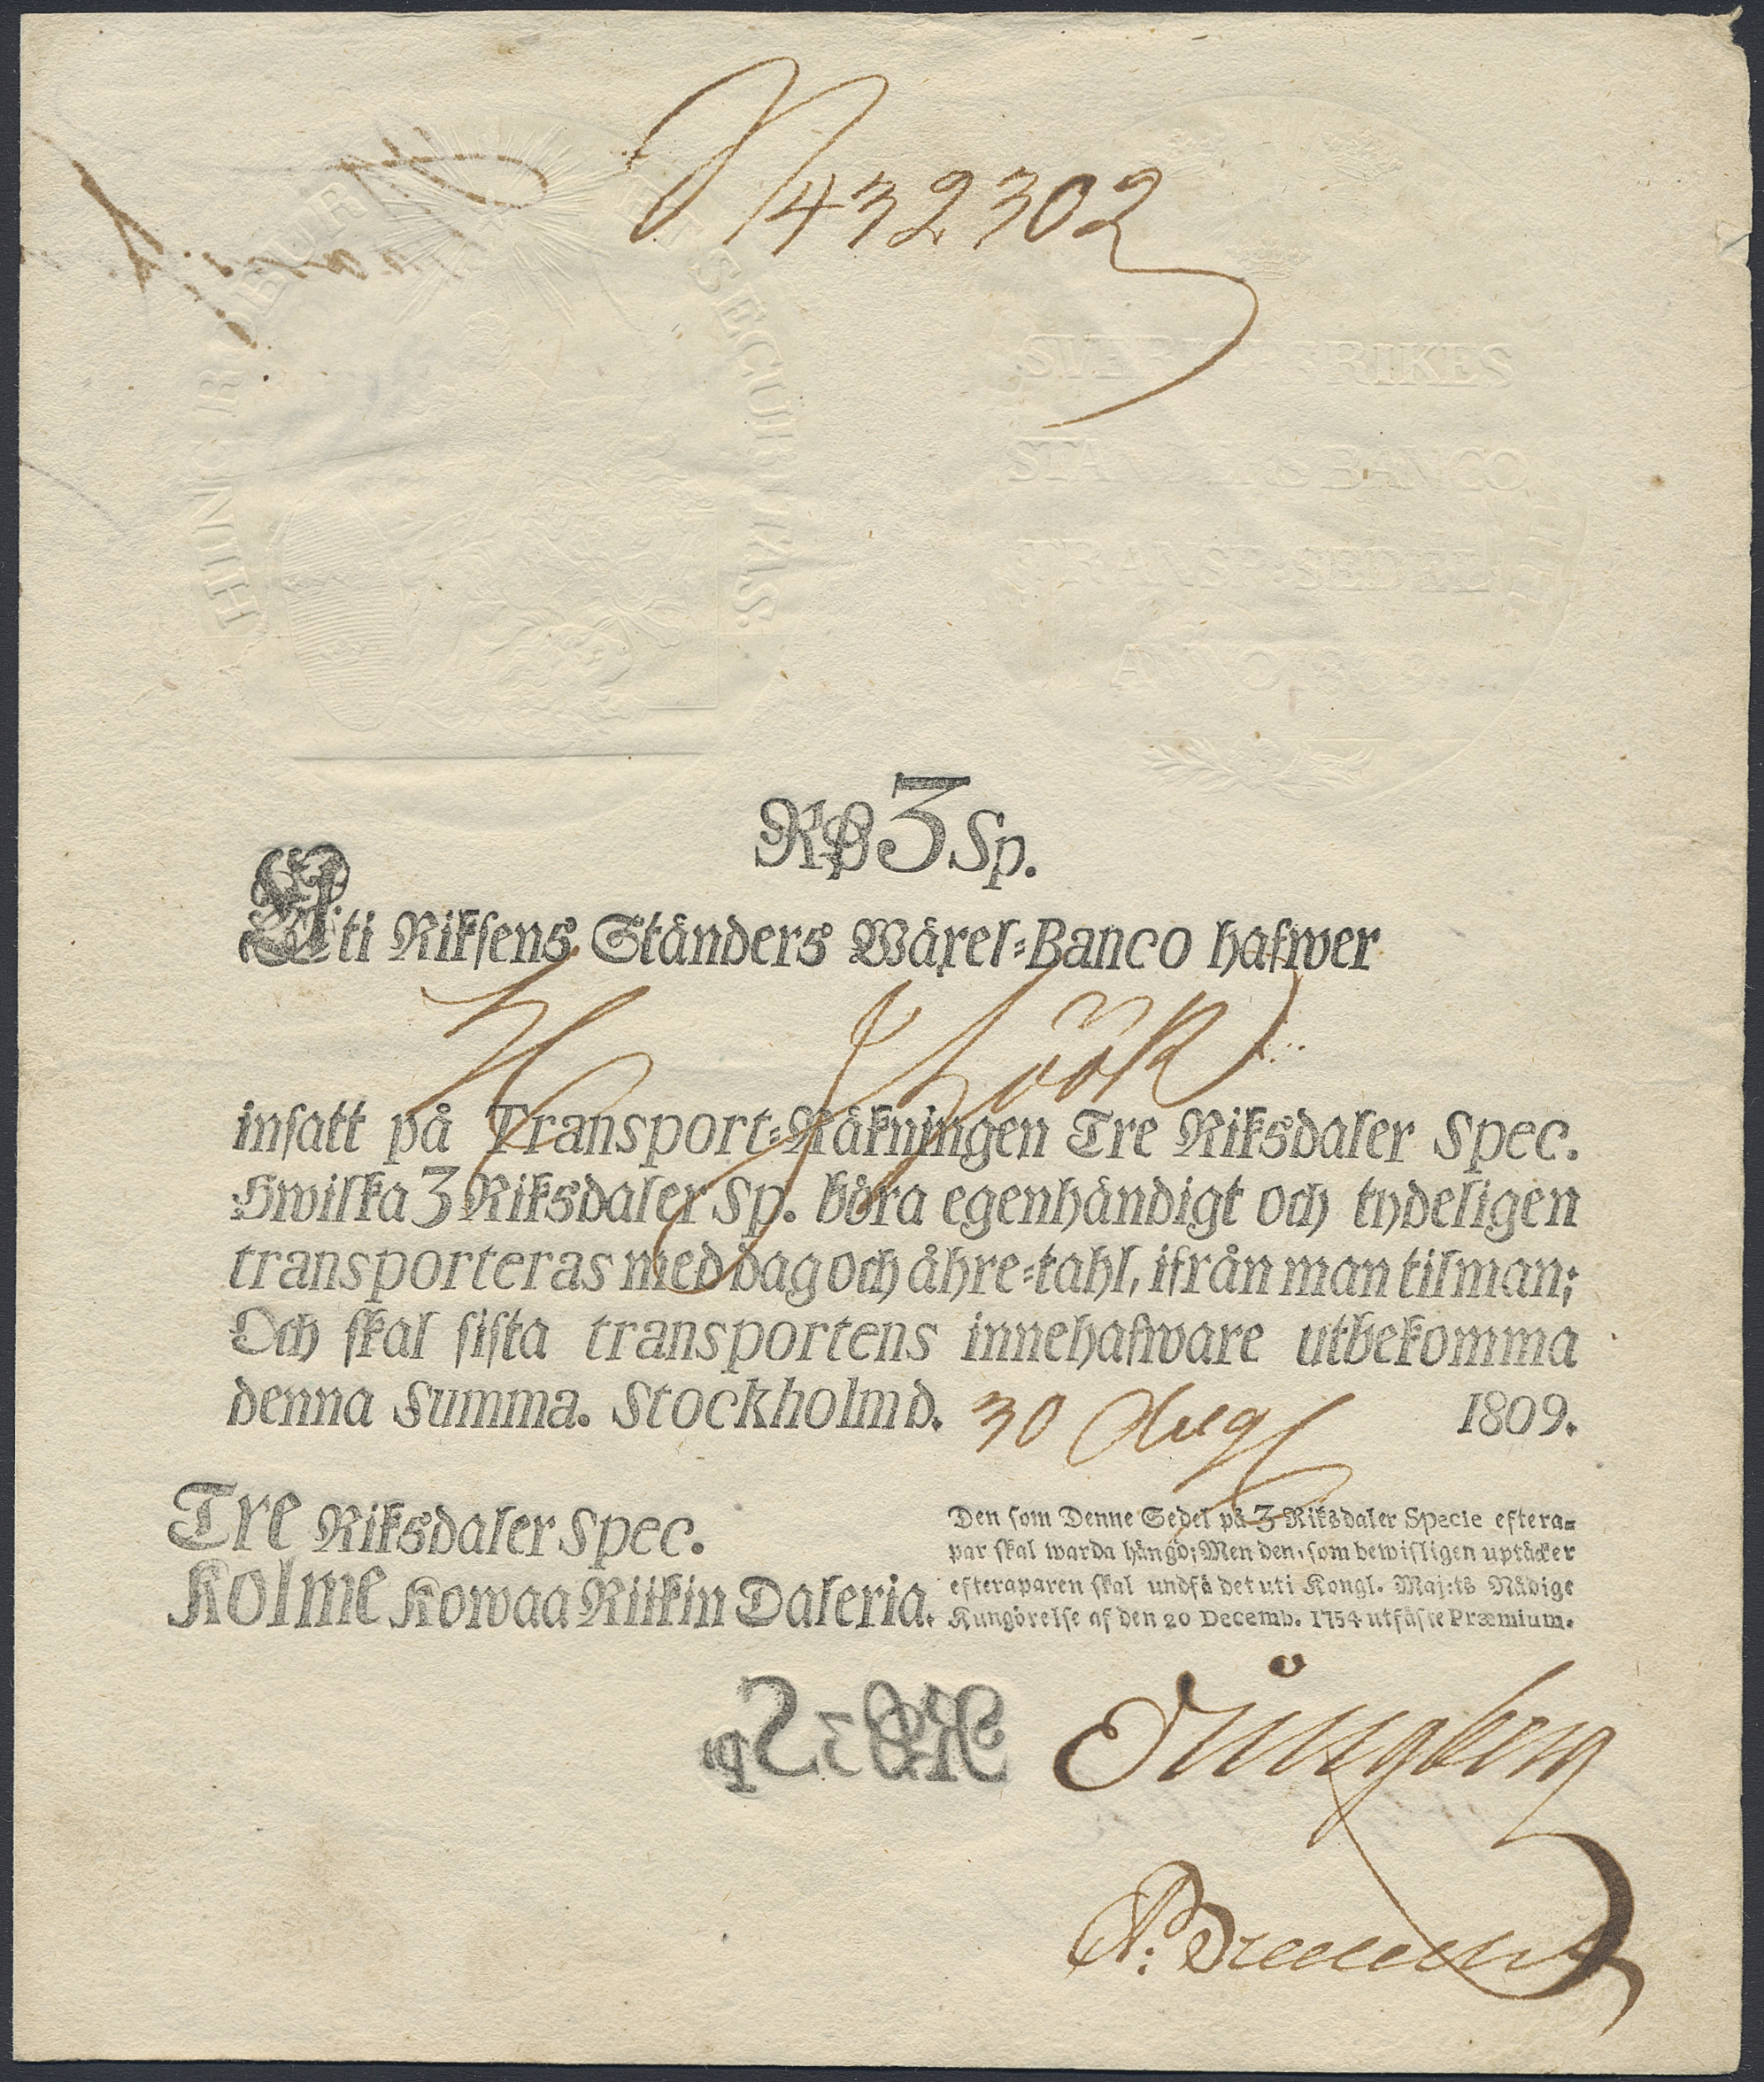 N 432302
HINC ROBUR ET SECURITAS.
SVERIGES RIKES
STÄNDERS BANCO
TRANSP. SEDEL
ANNO 1809.
RD 3 Sp.
Uti Riksens Ständers Wäxel-Banco hafwer
H Höök
insatt på Transport-Räkningen Tre Riksdaler Spec.
Hwilka 3 Riksdaler Sp. böra egenhändigt och tydeligen
transporteras med dag och åhre-tahl, ifrån man til man;
Och skal sista transportens innehafware utbekomma
denna Summa. Stockholm d. 30 Aug 1809.
Tre Riksdaler Spec.
Kolme Kowaa Riikin Daleria.
Den som Denne Sedel på 3 Riksdaler Specie eftera-
par skal warda hängd; Men den, som bewisligen uptäcker
efteraparen skal undfå det uti Kongl. Maj:ts Nådige
Kungörelse af den 20 Decemb. 1754 utfäste Præmium.
RD 3 Sp
Ljungberg